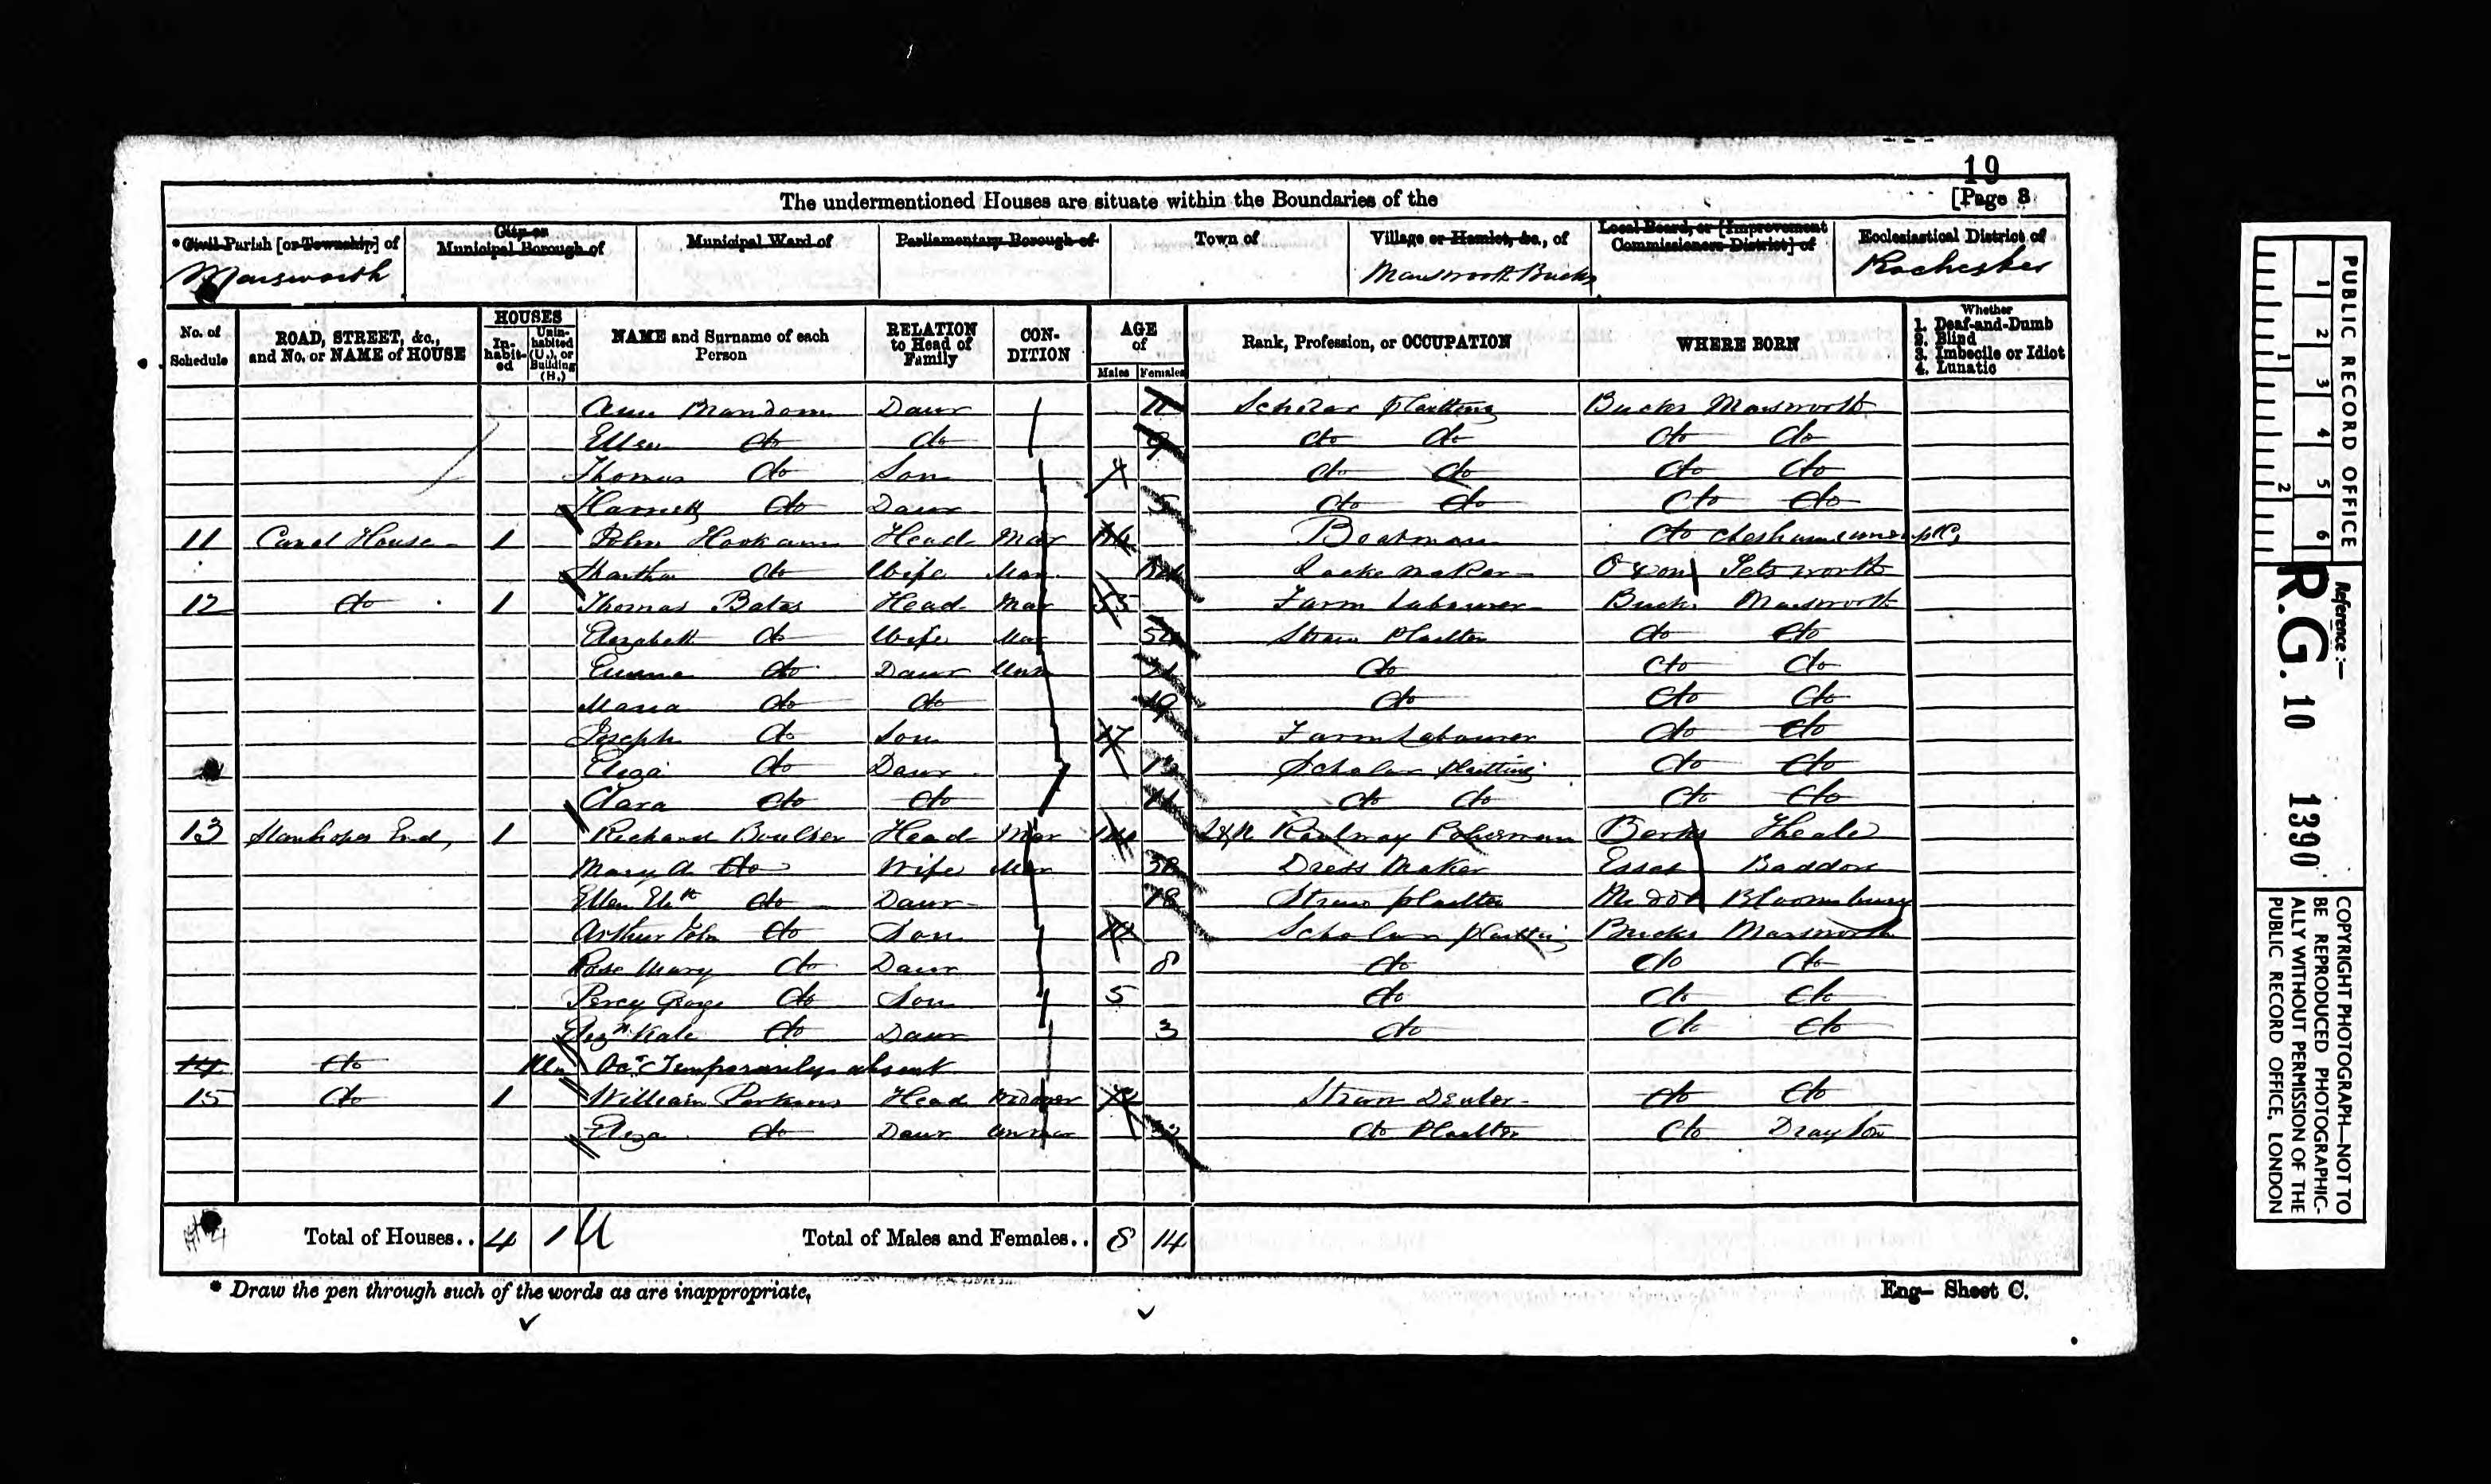 19
The undermentioned Houses are situate within the Boundaries of the [Page 3
* Civil Parish [or Township] of City or Municipal Borough of Municipal Ward of Parliamentary Borough of Town of Village or Hamlet, &c., of Local Board, or [Improvement Commissioners District] of Ecclesiastical District of
Marsworth Marsworth Bucks Rochester
No. of Schedule ROAD, STREET, &c., and No. or NAME of HOUSE HOUSES In-habit-ed Unin-habited (U.), or Building (B.) NAME and Surname of each Person RELATION to Head of Family CON-DITION AGE of Males Females Rank, Profession, or OCCUPATION WHERE BORN Whether 1. Deaf-and-Dumb 2. Blind 3. Imbecile or Idiot 4. Lunatic
Ann Daur 11 Scholar plaitting Bucks Marsworth
Ellen do do 9 do do do do
Thomas do Son do do do do
Harriett do Daur 5 do do do do
11 Canal House 1 John Hookam Head Mar Boatman do
Martha do Wife Mar Oxon Tetsworth
12 do 1 Thomas Bates Head Mar 53 Farm Labourer Bucks Marsworth
Elizabeth do Wife Mar Straw Plaitter do do
Emma do Daur Unm do do do
Maria do do 19 do do do
Joseph do Son 17 Farm Labourer do do
Eliza do Daur 13 Scholar plaitting do do
Clara do do 11 do do do do
13 Stanhopes End, 1 Richard Head Mar Railway Policeman Berks Theale
Mary A. do Wife Mar 38 Dress Maker Essex Baddow
Ellen Elith do Daur 18 Straw plaitter Bloomsbury
Arthur John do Son Scholar plaitting Bucks Marsworth
Rose Mary do Daur 8 do do do
Percy George do Son 5 do do do
Kate do Daur 3 do do do
14 do Un Occ Temporarily absent
15 do 1 William Perkins Head Widower Straw Dealer do do
Eliza do Daur Unmar do Plaitter do Drayton
Total of Houses.. 4 1 U Total of Males and Females.. 8 14
* Draw the pen through such of the words as are inappropriate,
Eng- Sheet C.
PUBLIC RECORD OFFICE
1 2 3 4 5 6
1 2
Reference:-
R.G. 10 1390
COPYRIGHT PHOTOGRAPH—NOT TO
BE REPRODUCED PHOTOGRAPHIC-
ALLY WITHOUT PERMISSION OF THE
PUBLIC RECORD OFFICE, LONDON